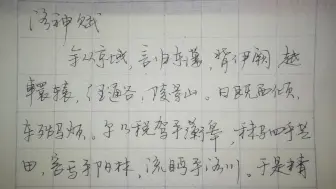 洛神赋
余从京域,言归东藩,背伊阙,越
轘辕,经通谷,陵景山。日既西倾,
车殆马烦。尔乃税驾乎蘅皋,秣驷乎芝
田,容与乎阳林,流眄乎洛川。于是精